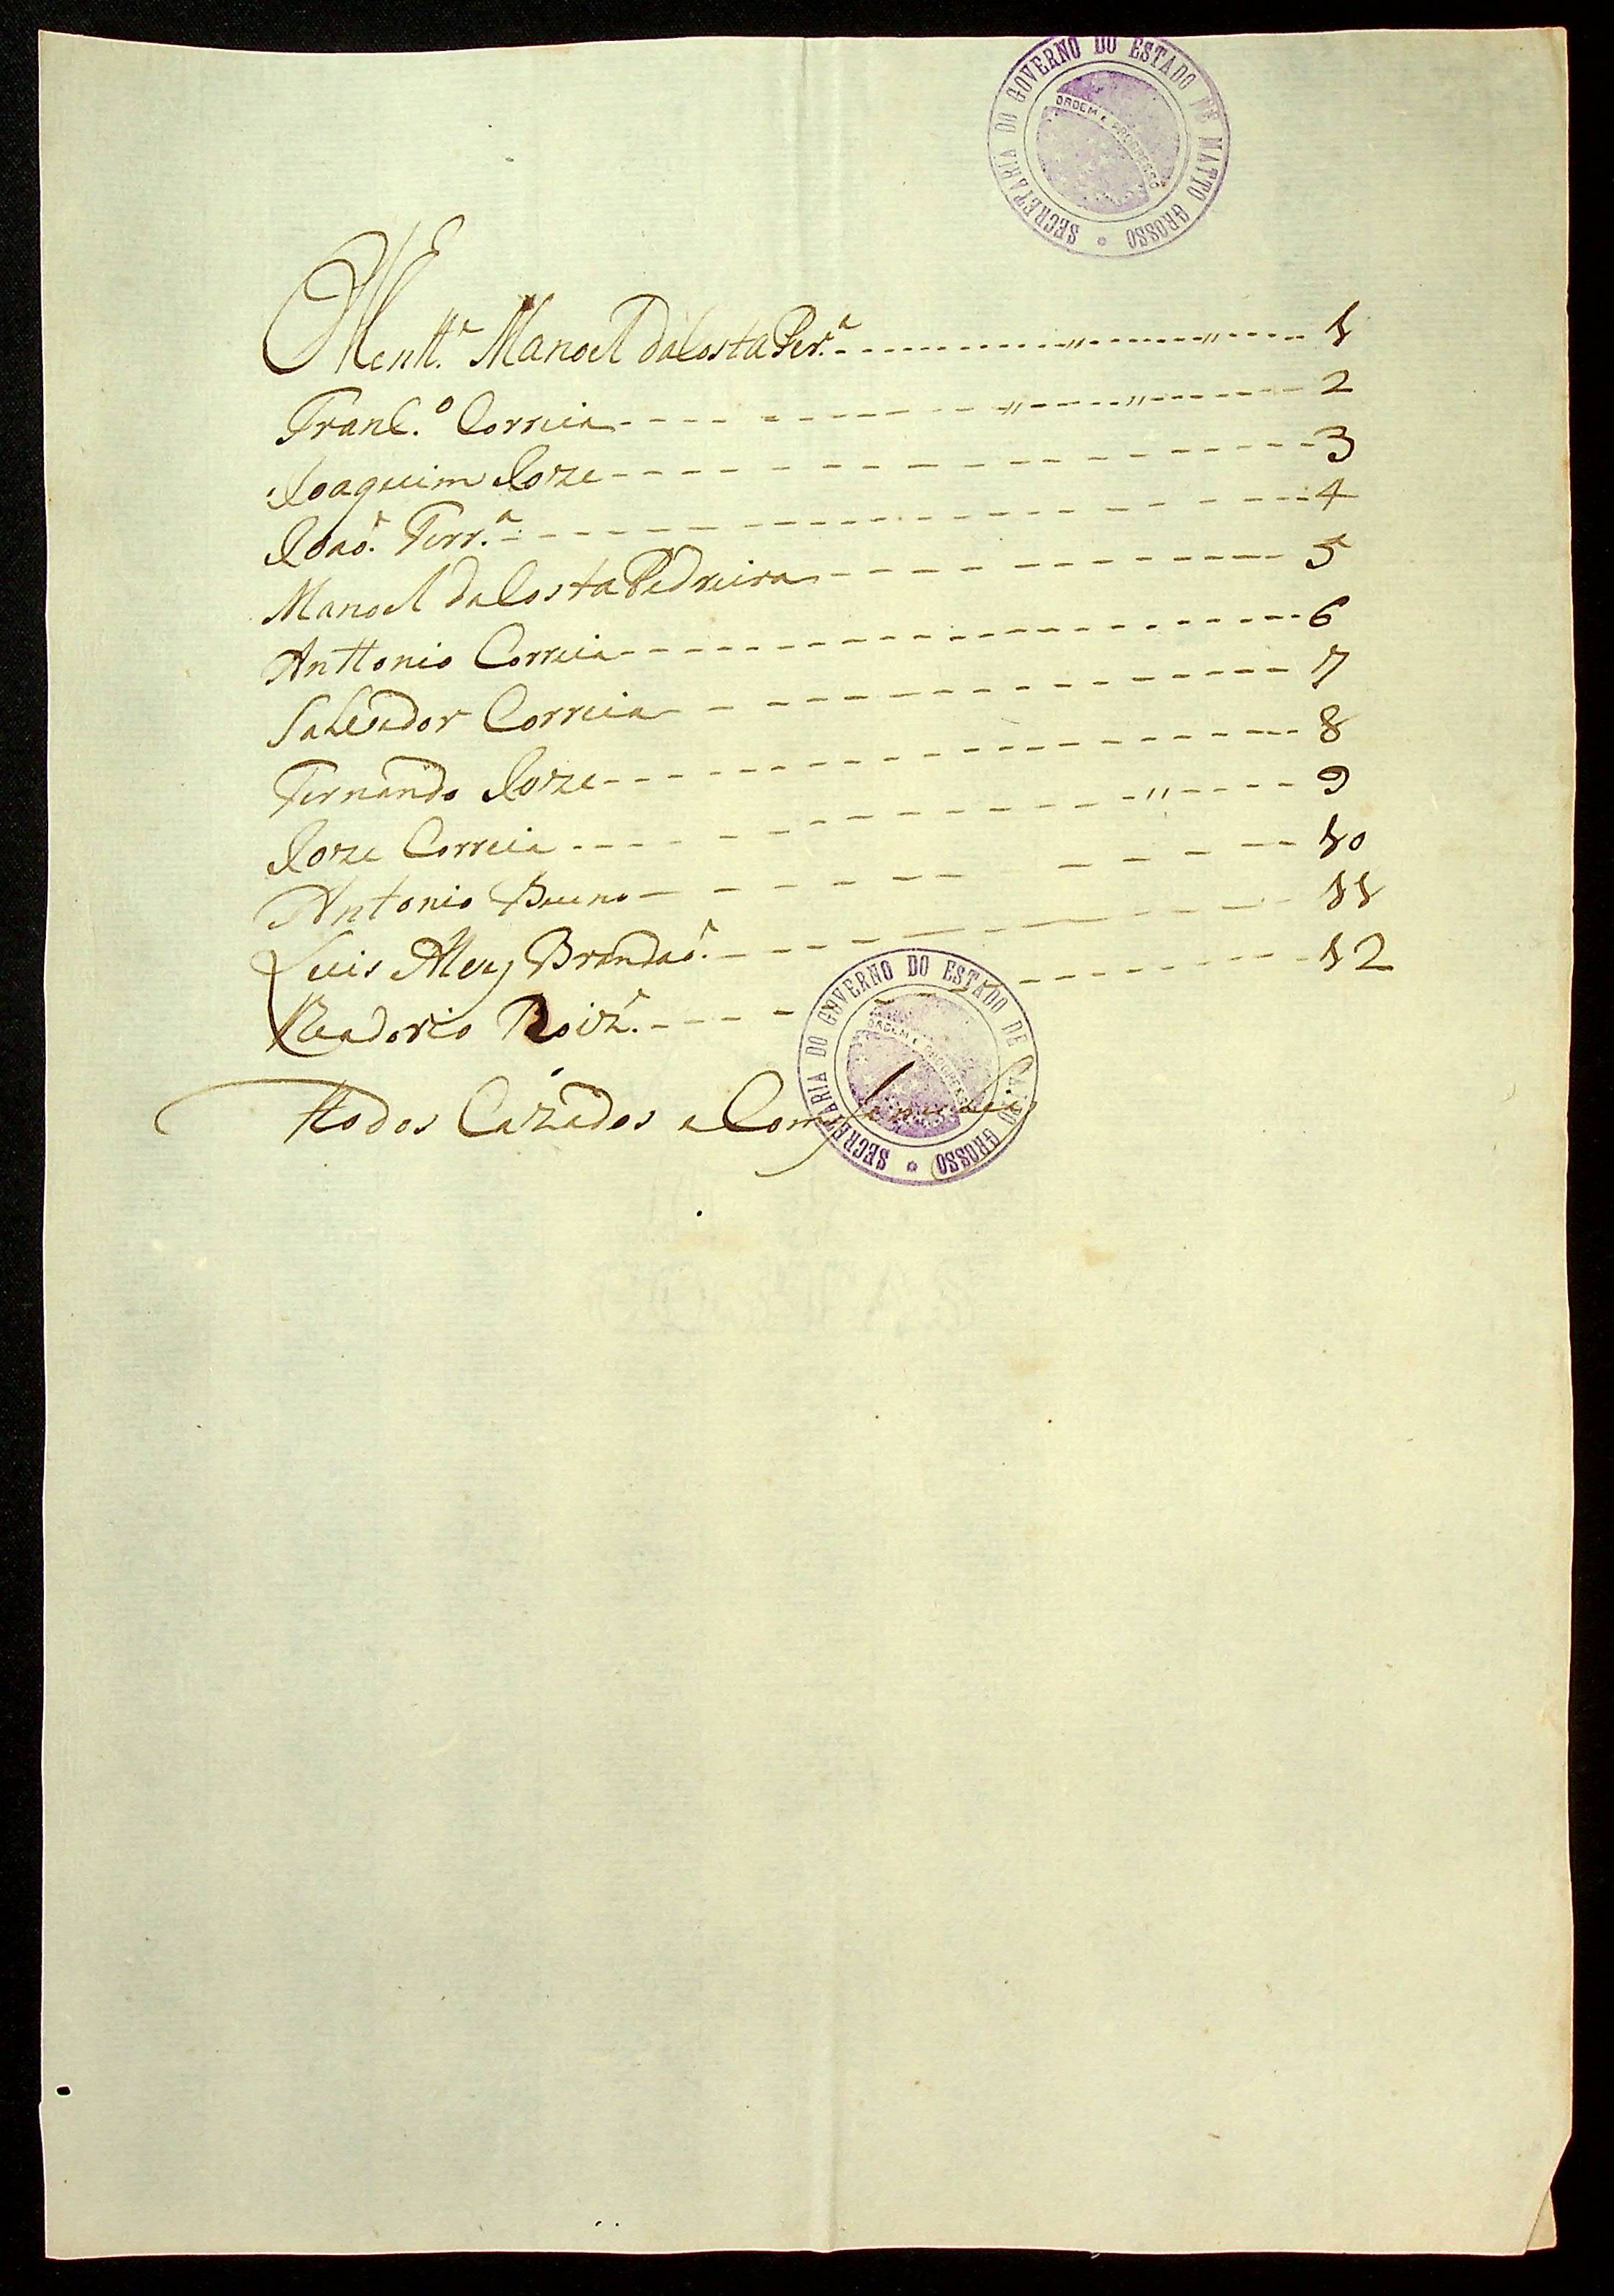 SECRETARIA DO GOVERNO DO ESTADO DE MATTO GROSSO
ORDEM E PROGRESSO
Manoel da Costa Per.ª 1
Franc.º Correia 2
Joaquim Joze 3
Joaõ Ferr.ª 4
Manoel da Costa Pedreira 5
Anttonio Correia 6
Salvador Correia 7
Fernando Joze 8
Joze Correia 9
Antonio Bueno 10
Luis Alvz Brandaõ 11
Roiz. 12
ttodos Cazados e Com familia
SECRETARIA DO GOVERNO DO ESTADO DE MATTO GROSSO
ORDEM E PROGRESSO